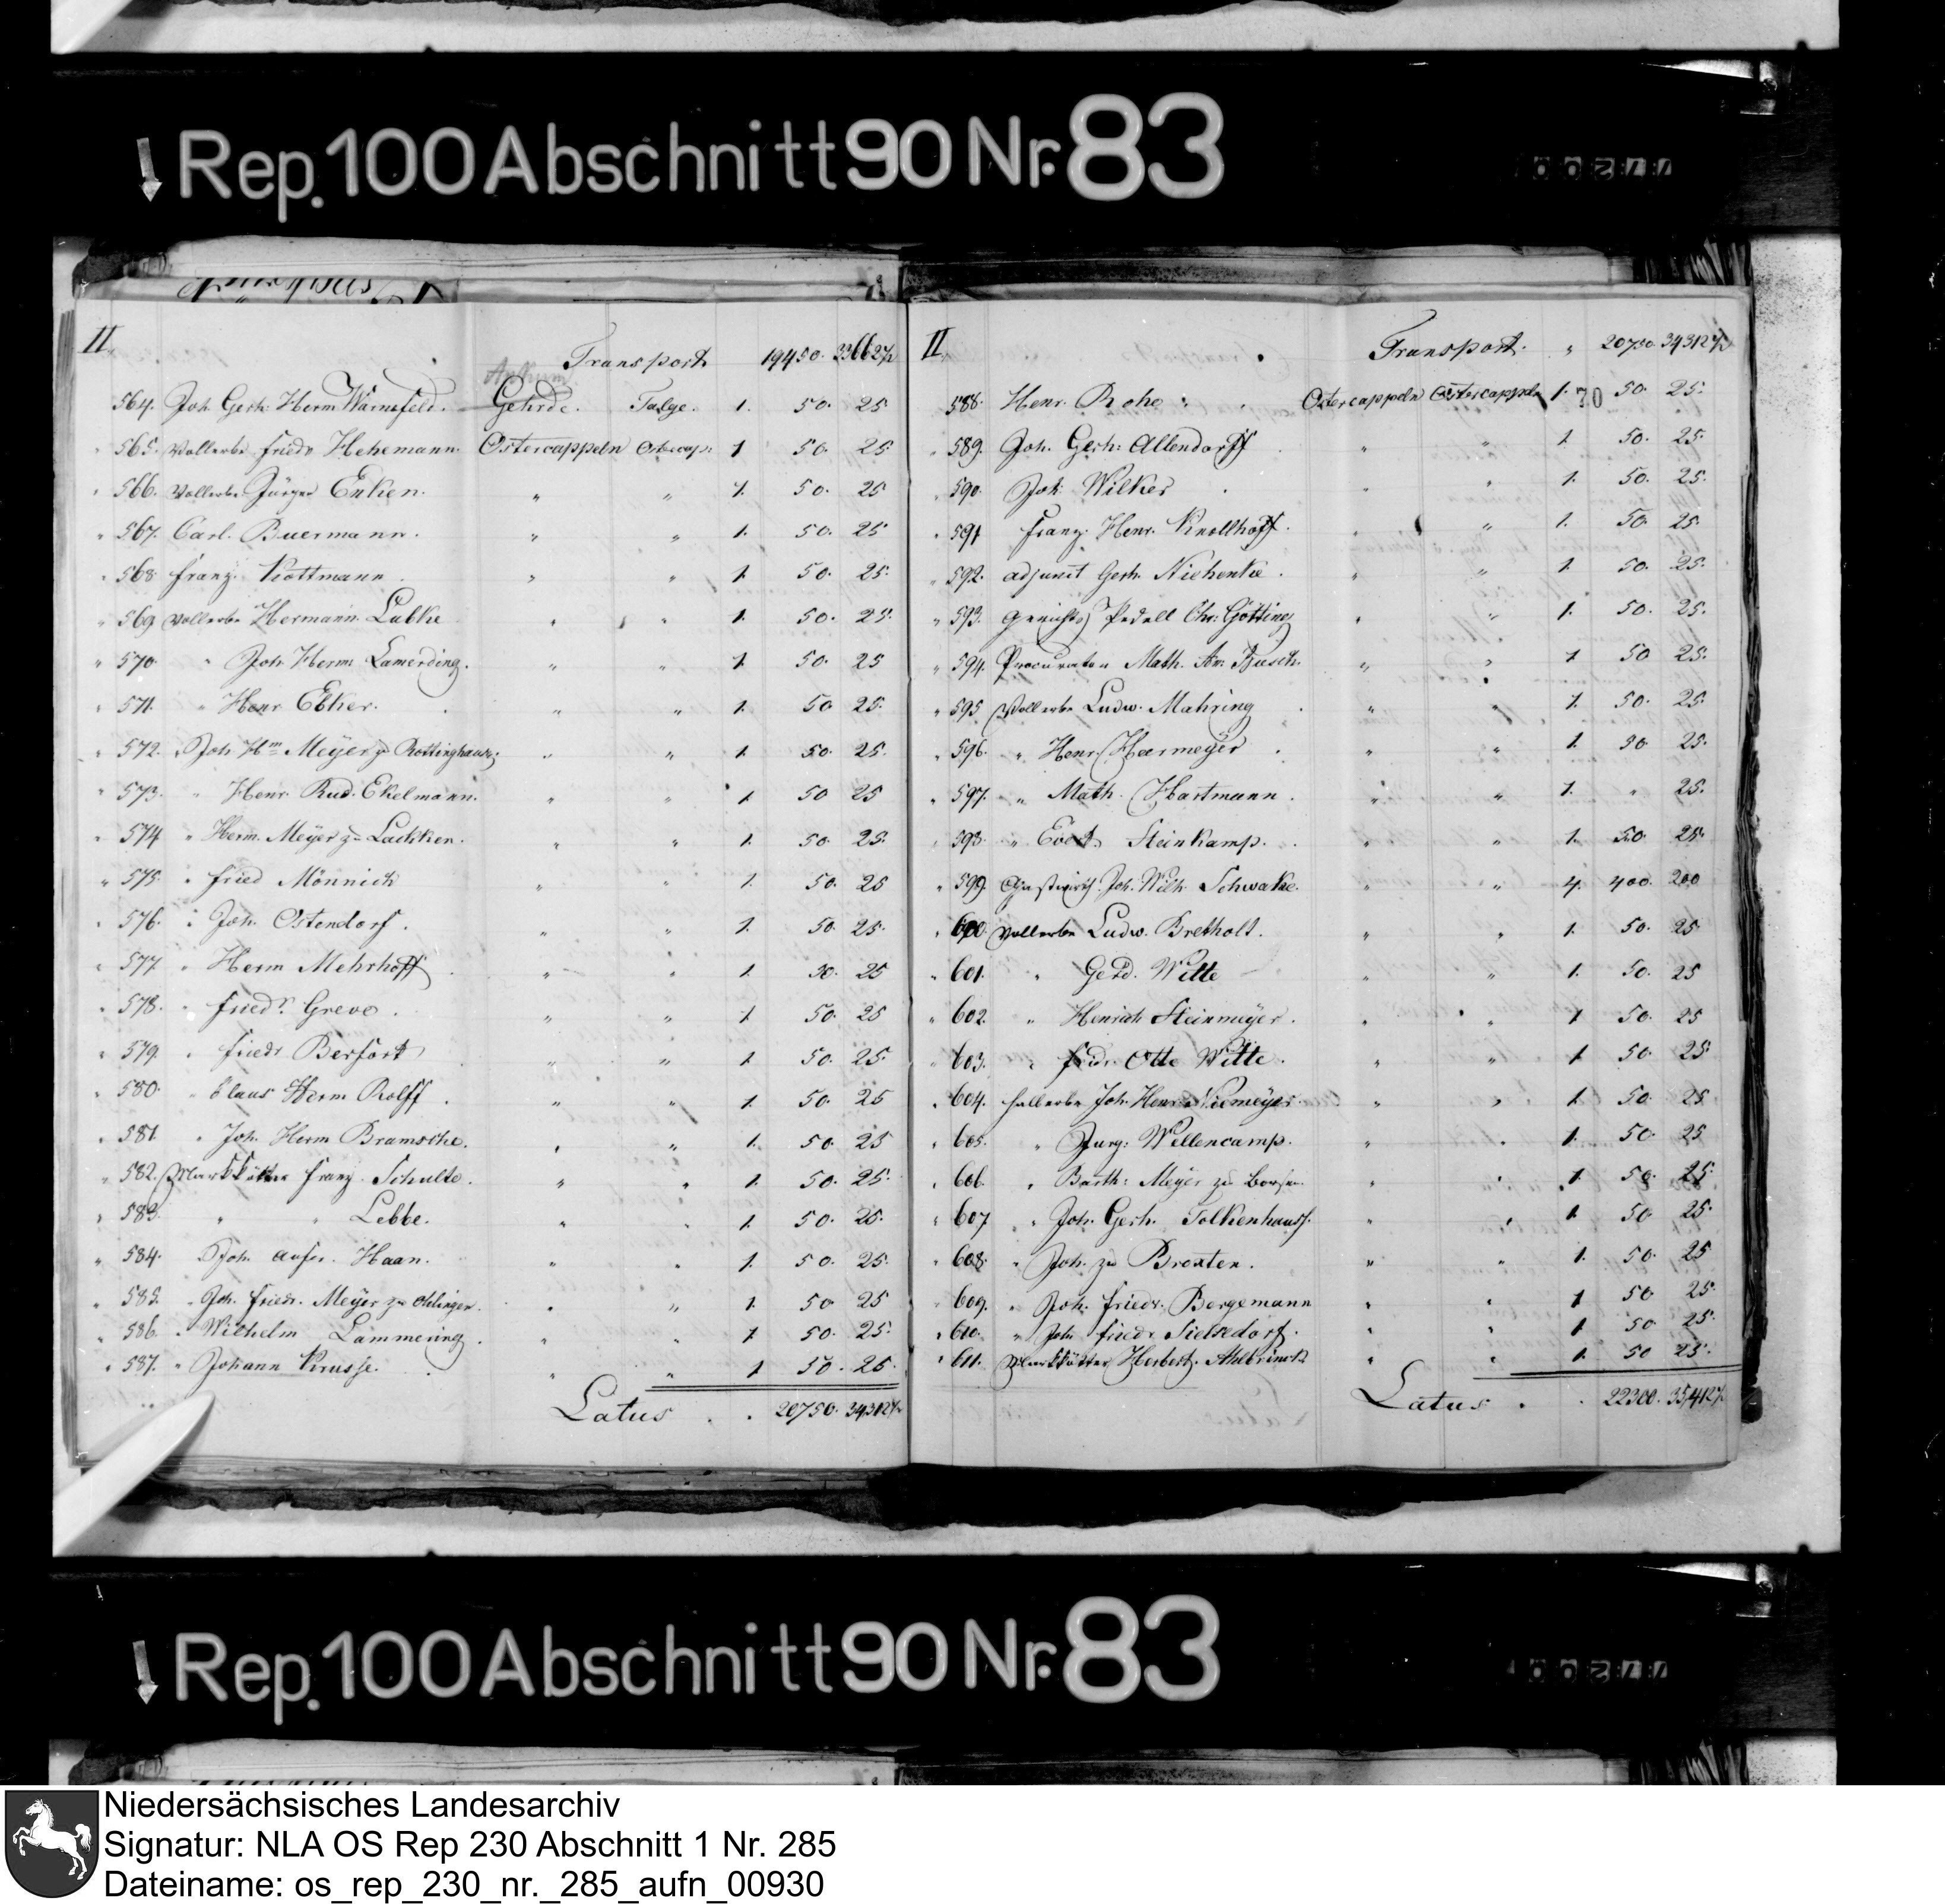 Rep. 100 Abschnitt 90 Nr. 83
II.
Transport 19450. 33662½
Ankum
564. Joh. Gerh. Herm Warnsfeld. Gehrde. Talge. 1. 50. 25
" 565. Vollerbe Friedr Hehemann. Ostercappeln Ostercap: 1 50. 25
" 566. Vollerbe Jürgen Enken. " " 1. 50. 25
" 567. Carl. Buermann. " " 1. 50. 25
" 568 Franz. Kottmann. " " 1. 50. 25.
" 569 Vollerbe Hermann. Lubke " " 1. 50. 25.
" 570. " Joh Herm Lamerding. " " 1. 50. 25
" 571. " Henr Elker. " " 1. 50 25.
" 572. " Joh Hm Meyer z. Rottinghausen " " 1. 50. 25.
" 573. " Henr. Rud. Ekelmann. " " 1. 50 25
" 574 " Herm. Meyer zu Lackken. " " 1. 50. 25.
" 575. " Fried Mönnich " " 1. 50. 25
" 576. " Joh. Ostendorf. " " 1. 50. 25.
" 577. " Herm Mehrhoff " " 1. 50. 25
" 578. " Friedr. Greve. " " 1 50. 25
" 579. " Friedr Berfort " " 1. 50. 25.
" 580. " Claus Herm Rolff. " " 1. 50. 25
" 581. " Joh. Herm Bramsche. " " 1. 50. 25
" 582. Markkötter Franz. Schulte. " " 1. 50. 25.
" 583. " " Lebbe. " " 1. 50. 25.
" 584. " Joh. Haan. " " 1. 50. 25.
" 585. " Joh. Friedr. Meyer zu Ohlingen. " " 1. 50 25
" 586. " Wilhelm Lammering. " " 1 50. 25.
" 587. " Johann Krusse. " " 1 50. 25.
Latus . . 20750. 34312½
II.
Transport. " 20750. 34312½
588. Henr. Rohe " " Ostercappeln Ostercappeln 1. 70 50. 25.
" 589. Joh. Gerh: Allendorff " " 1. 50. 25.
" 590. Joh. Wilker " " 1. 50. 25.
" 591 Franz. Henr. Knollhoff. " " 1. 50. 25.
" 592. adjunct Gerh. Niehenke. " " 1. 50. 25.
" 593. Gerichts Pedell Chr: Götting " " 1. 50. 25.
" 594. Procurator Math. An: Busch. " " 1. 50 25.
" 595 Vollerbe Ludw. Mahring " " 1. 50. 25.
" 596. " Henr. Haermeyer " " 1. 50 25.
" 597. " Math. Hartmann. " " 1. " 25.
" 598. " Evert Steinkamp. " " 1. 50. 25.
" 599. Gastwirth. Joh. Wilh. Schwake. " " 4. 400. 200
" 600. Vollerbe Ludw. Bretholt. " " 1. 50. 25
" 601. " Gerd. Witte " " 1. 50. 25
" 602. " Henrich Steinmeyer. " " 1 50. 25
" 603. " Fridr. Otto Witte. " " 1 50. 25.
" 604. Halberbe Joh. Henr. Niemeyer. " " 1. 50. 25
" 605. " Jurg: Wellencamp. " " 1. 50. 25
" 606. " Barth: Meyer zu " " 1. 50. 25.
" 607. " Joh. Gerh. Tolkenhauss. " " 1. 50 25.
" 608. " Joh. zu Broxten. " " 1. 50. 25
" 609. " Joh. Friedr. Bergemann " " 1 50 25.
" 610. " Joh. Friedr Sielsedorf. " " 1. 50 25.
" 611. Markkötter Herbert. Ahlbrinck " " 1. 50 25.
Latus . . 22300. 35412½
Rep. 100 Abschnitt 90 Nr. 83
Niedersächsisches Landesarchiv
Signatur: NLA OS Rep 230 Abschnitt 1 Nr. 285
Dateiname: os_rep_230_nr._285_aufn_00930